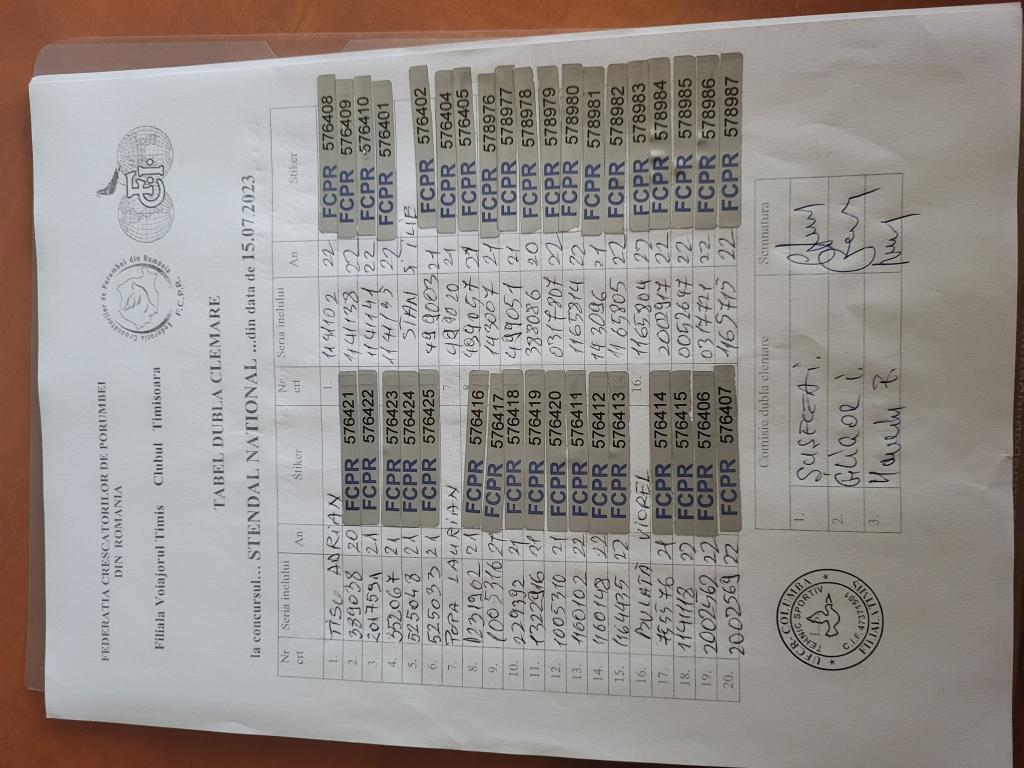 FEDERATIA CRESCATORILOR DE PORUMBEI
DIN ROMANIA
Federatia Crescatorilor de Porumbei din România
F.C.P.R.
Filiala Voiajorul Timis Clubul Timisoara
TABEL DUBLA CLEMARE
la concursul... STENDAL NATIONAL ...din data de 15.07.2023
Nr crt Seria inelului An Stiker Nr. crt Seria inelului An Stiker
1. ADRIAN 1. 1141102 22 FCPR 576408
2. 389058 20 FCPR 576421 1141138 22 FCPR 576409
3. 2017591 21 FCPR 576422 1141141 22 FCPR 576410
4. 352067 21 FCPR 576423 1141135 22 FCPR 576401
5. 525048 21 FCPR 576424 STAN S ILIE
6. 525033 21 FCPR 576425 499003 21 FCPR 576402
7. POPA LAURIAN 7. 493020 21 FCPR 576404
8. 1231902 21 FCPR 576416 8 499057 21 FCPR 576405
9. 1005316 21 FCPR 576417 143007 21 FCPR 578976
10. 229392 21 FCPR 576418 499051 21 FCPR 578977
11. 1322916 21 FCPR 576419 388086 20 FCPR 578978
12. 1005310 21 FCPR 576420 0317807 22 FCPR 578979
13. 1160102 22 FCPR 576411 1165814 22 FCPR 578980
14. 1160148 22 FCPR 576412 143096 21 FCPR 578981
15. 1164435 22 FCPR 576413 1165805 22 FCPR 578982
16. BULATA VIOREL 16. 1165804 22 FCPR 578983
17. 755576 21 FCPR 576414 2002917 22 FCPR 578984
18. 1141118 22 FCPR 576415 0052947 22 FCPR 578985
19. 2002462 22 FCPR 576406 0317721 22 FCPR 578986
20. 2002569 22 FCPR 576407 1165715 22 FCPR 578987
Comisie dubla clemare Semnatura
1.
2.
3.
U.F.C.R. COLUMBA
TEHNIC SPORTIV
FILIALA TIMIS